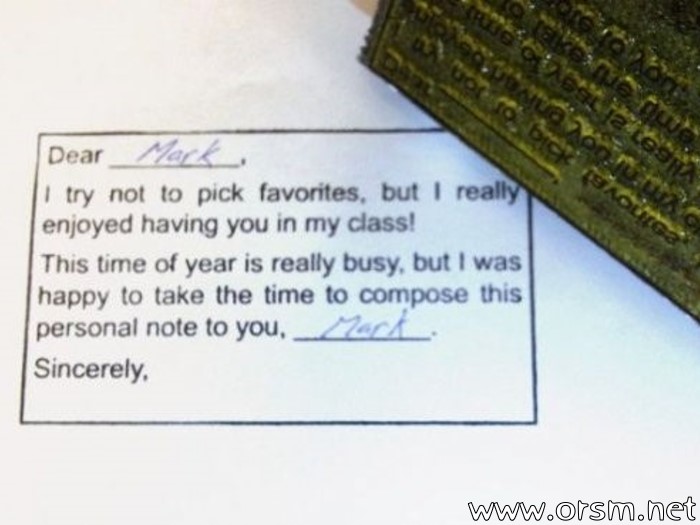 Dear Mark,
I try not to pick favorites, but I really
enjoyed having you in my class!
This time of year is really busy, but I was
happy to take the time to compose this
personal note to you, Mark.
Sincerely,
www.orsm.net